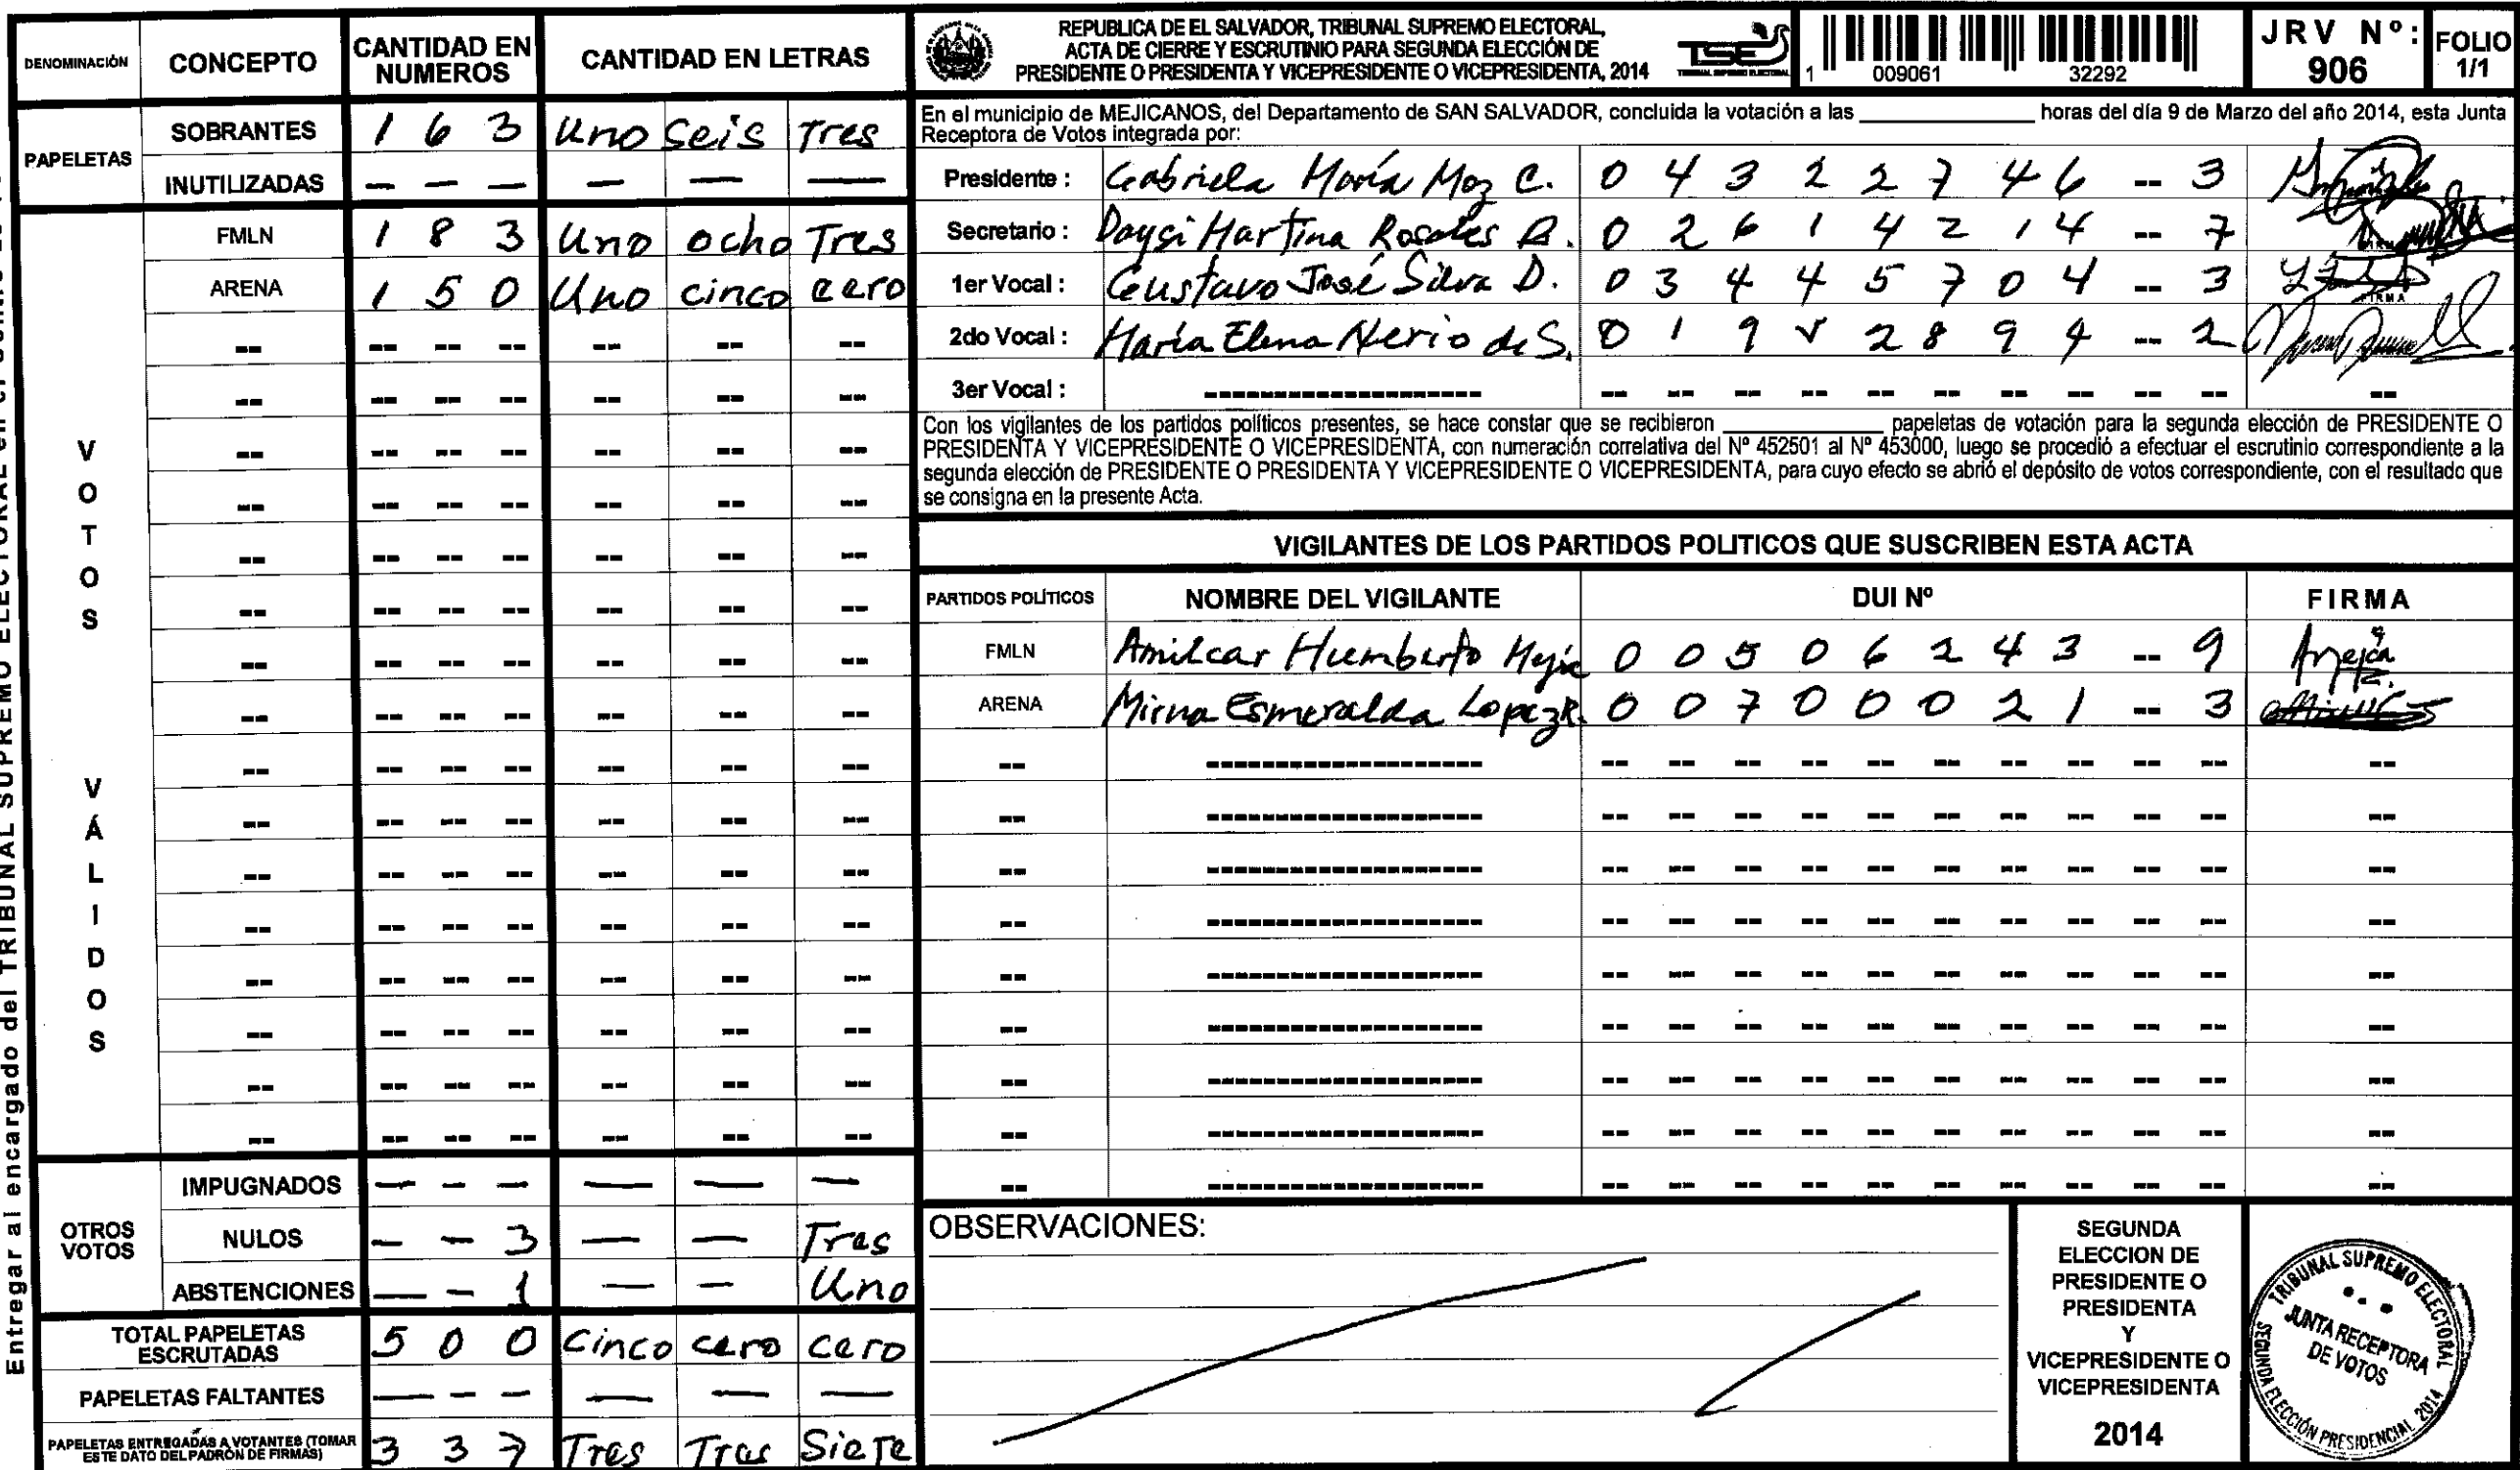 DENOMINACIÓN CONCEPTO CANTIDAD EN NUMEROS CANTIDAD EN LETRAS
PAPELETAS
SOBRANTES 1 6 3 Uno Seis Tres
INUTILIZADAS — — — — — —
VOTOS VÁLIDOS
FMLN 1 8 3 Uno ocho Tres
ARENA 1 5 0 Uno cinco cero
OTROS VOTOS
IMPUGNADOS — — — — — —
NULOS — — 3 — — Tres
ABSTENCIONES — — 1 — — Uno
TOTAL PAPELETAS ESCRUTADAS 5 0 0 Cinco cero cero
PAPELETAS FALTANTES — — — — — —
PAPELETAS ENTREGADAS A VOTANTES (TOMAR ESTE DATO DEL PADRÓN DE FIRMAS) 3 3 7 Tres Tres Siete
Entregar al encargado del TRIBUNAL SUPREMO ELECTORAL en el
REPUBLICA DE EL SALVADOR, TRIBUNAL SUPREMO ELECTORAL,
ACTA DE CIERRE Y ESCRUTINIO PARA SEGUNDA ELECCIÓN DE
PRESIDENTE O PRESIDENTA Y VICEPRESIDENTE O VICEPRESIDENTA, 2014
TSE
TRIBUNAL SUPREMO ELECTORAL
1 009061 32292
JRV Nº: 906
FOLIO 1/1
En el municipio de MEJICANOS, del Departamento de SAN SALVADOR, concluida la votación a las ____________ horas del día 9 de Marzo del año 2014, esta Junta
Receptora de Votos integrada por:
Presidente : Gabriela María Moz C. 0 4 3 2 2 7 4 6 -- 3
Secretario : Daysi Martina Rosales A. 0 2 6 1 4 2 1 4 -- 7
1er Vocal : Gustavo José Silva D. 0 3 4 4 5 7 0 4 -- 3
2do Vocal : María Elena Nerio de S. 0 1 9 2 8 9 4 -- 2
3er Vocal :
Con los vigilantes de los partidos políticos presentes, se hace constar que se recibieron ____________ papeletas de votación para la segunda elección de PRESIDENTE O
PRESIDENTA Y VICEPRESIDENTE O VICEPRESIDENTA, con numeración correlativa del Nº 452501 al Nº 453000, luego se procedió a efectuar el escrutinio correspondiente a la
segunda elección de PRESIDENTE O PRESIDENTA Y VICEPRESIDENTE O VICEPRESIDENTA, para cuyo efecto se abrió el depósito de votos correspondiente, con el resultado que
se consigna en la presente Acta.
VIGILANTES DE LOS PARTIDOS POLITICOS QUE SUSCRIBEN ESTA ACTA
PARTIDOS POLÍTICOS NOMBRE DEL VIGILANTE DUI Nº FIRMA
FMLN Amilcar Humberto Mejía 0 0 5 0 6 2 4 3 -- 9
ARENA Mirna Esmeralda Lopez R. 0 0 7 0 0 0 2 1 -- 3
OBSERVACIONES:
SEGUNDA
ELECCION DE
PRESIDENTE O
PRESIDENTA
Y
VICEPRESIDENTE O
VICEPRESIDENTA
2014
TRIBUNAL SUPREMO ELECTORAL
JUNTA RECEPTORA
DE VOTOS
SEGUNDA ELECCIÓN PRESIDENCIAL 2014